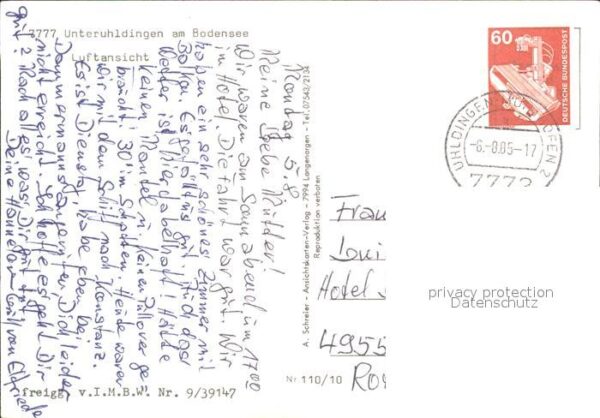 7777 Unteruhldingen am Bodensee
Luftansicht
Montag 5.8
Meine liebe Mutter!
Wir waren am Sonnabend um 17 00
im Hotel. Die Fahrt war gut. Wir
haben ein sehr schönes Zimmer mit
Balkon. Es gefällt mir gut. Auch das
Wetter ist fabelhaft! Hätte
keinen Mantel u. keinen Pullover ge-
braucht. 30° im Schatten. Heute waren
wir mit dem Schiff nach Konstanz.
Es ist Dienstag, habe eben bei
Dammermanns angerufen Dich leider
nicht erreicht. Ich hoffe es geht Dir
gut? Mach alles was Dir gut tut
Deine Hannelore Gruß von Elfriede
freigg. v.I.M.B.W. Nr. 9/39147
A. Schreier - Ansichtskarten-Verlag - 7994 Langenargen - Tel. 07543/2134
Reproduktion verboten
Nr 110/10
60
DEUTSCHE BUNDESPOST
UHLDINGEN-MÜHLHOFEN 2
-6.-8.85-17
7772
Frau
Hotel
4955
privacy protection
Datenschutz